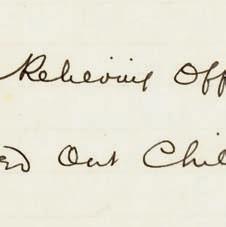 Relieving Off
ed Out Chil